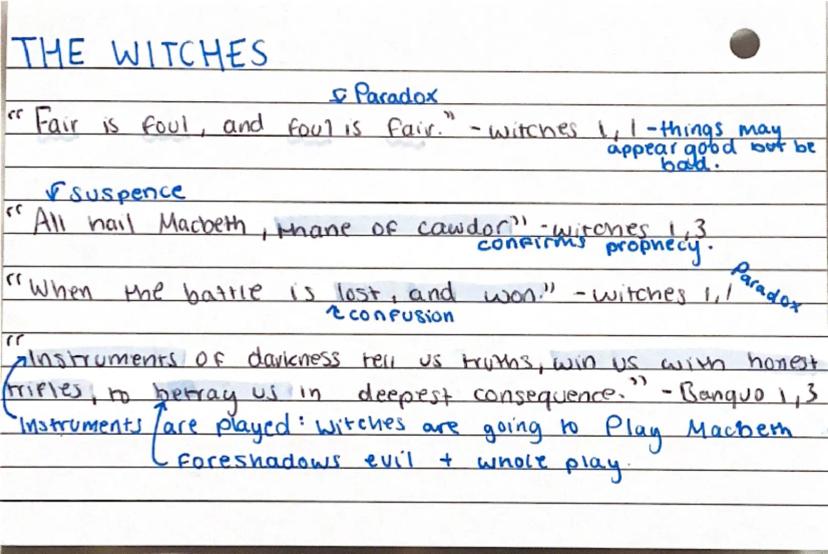 THE WITCHES
Paradox
"Fair is foul, and foul is fair." - witches 1,1 - things may
appear good but be
bad.
suspence
"All hail Macbeth, thane of cawdor" - witches 1,3
confirms prophecy.
"When the battle is lost, and won." - witches 1,1 Paradox
confusion
"Instruments of darkness tell us truths, win us with honest
trifles, to betray us in deepest consequence." - Banquo 1,3
Instruments are played: witches are going to Play Macbeth
Foreshadows evil + whole play.